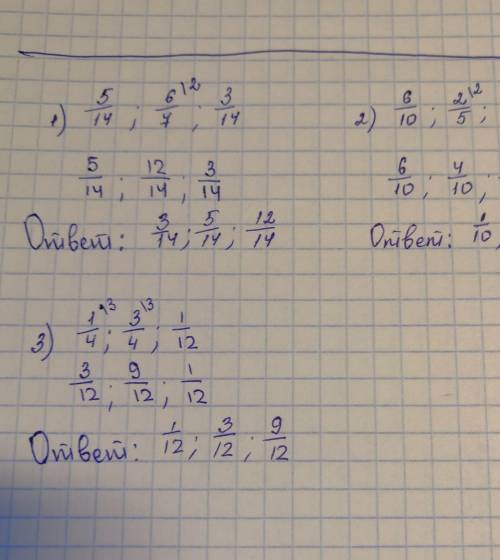 1) 5/14 ; 6\2/7 ; 3/14
5/14 ; 12/14 ; 3/14
Ответ: 3/14; 5/14; 12/14
2) 6/10 ; 2\2/5 ;
6/10 ; 4/10 ;
Ответ: 1/10,
3) 1\3/4 ; 3\3/4 ; 1/12
3/12 ; 9/12 ; 1/12
Ответ: 1/12 ; 3/12 ; 9/12